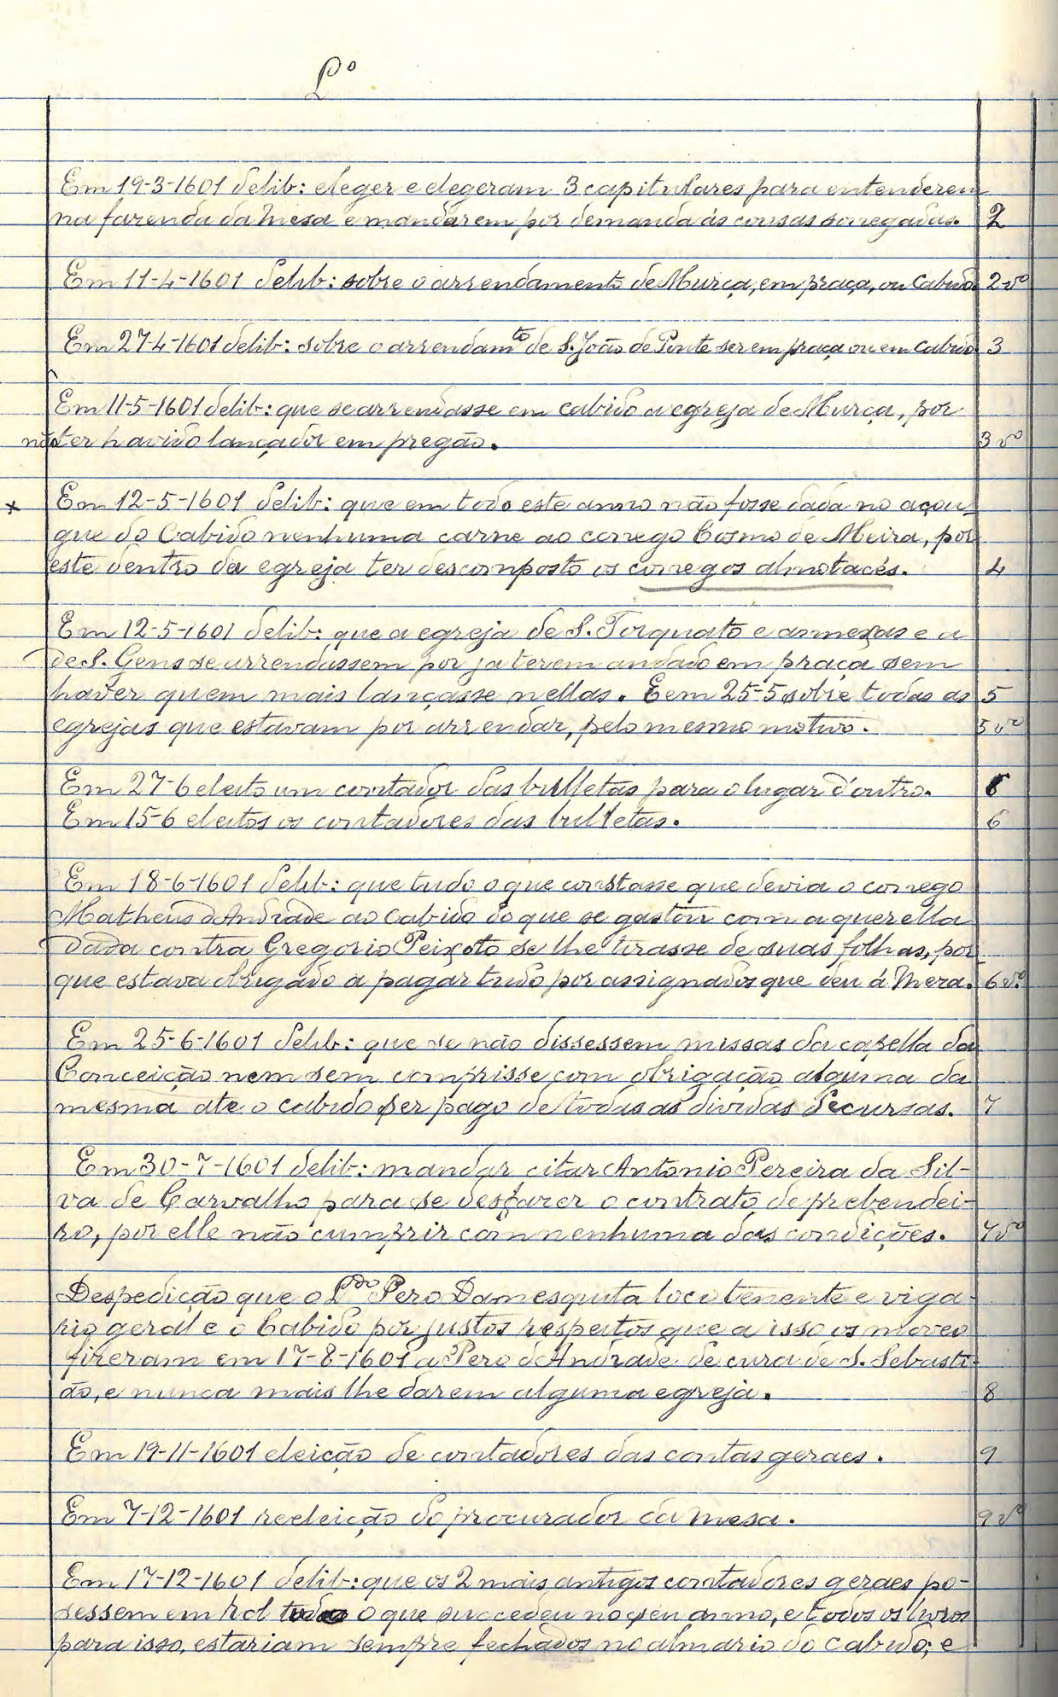 Lº
Em 19-3-1601 delib: eleger e elegeram 3 capitulares para entenderem
na fazenda da Mesa e mandarem por demanda ás cousas sonegadas. 2
Em 11-4-1601 delib: sobre o arrendamento de Murça, em praça, ou Cabido 2vº
Em 27-4-1601 delib: sobre o arrendamto de S. João de Ponte ser em praça ou em Cabido 3
Em 11-5-1601 delib: que se arrendasse em cabido a egreja de Murça, por
não ter havido lançador em pregão. 3vº
* Em 12-5-1601 delib: que em todo este anno não fosse dada no açou-
gue do Cabido nenhuma carne ao conego Cosmo de Meira, por
este dentro da egreja ter descomposto os conegos almotacés. 4
Em 12-5-1601 delib: que a egreja de S. Torquato e annexas e a
de S. Gens se arrendassem por ja terem andado em praça sem
haver quem mais lançasse nellas. E em 25-5 sobre todas as 5
egrejas que estavam por arrendar, pelo mesmo motivo. 5vº
Em 27-6 eleito um contador das bulletas para o lugar d'outro. 6
Em 15-6 eleitos os contadores das bulletas. 6
Em 18-6-1601 delib: que tudo o que constasse que devia o conego
Matheus d'Andrade ao Cabido do que se gastou com a querella
dada contra Gregorio Peixoto se lhe tirasse de suas folhas, por
que estava obrigado a pagar tudo por assignados que deu á Meza. 6vº
Em 25-6-1601 delib: que se não dissessem missas da capella da
Conceição nem sem comprisse com obrigação alguma da
mesma ate o cabido ser pago de todas as dividas decursas. 7
Em 30-7-1601 delib: mandar citar Antonio Pereira da Sil-
va de Carvalho para se desfazer o contrato de prebendei-
ro, por elle não cumprir com nenhuma das condições. 7vº
Despedição que o Ldo Pero Damesquita loco tenente e viga-
rio geral e o Cabido por justos respeitos que a isso os moveo
fizeram em 17-8-1601 a Pero d'Andrade de cura de S. Sebasti-
ão, e nunca mais lhe darem alguma egreja. 8
Em 19-11-1601 eleição de contadores das contas geraes. 9
Em 7-12-1601 reeleição do procurador da Mesa. 9vº
Em 17-12-1601 delib: que os 2 mais antigos contadores geraes po-
sessem em rol o que succedeu no seu anno, e todos os livros
para isso, estariam sempre fechados no almario do Cabido; e